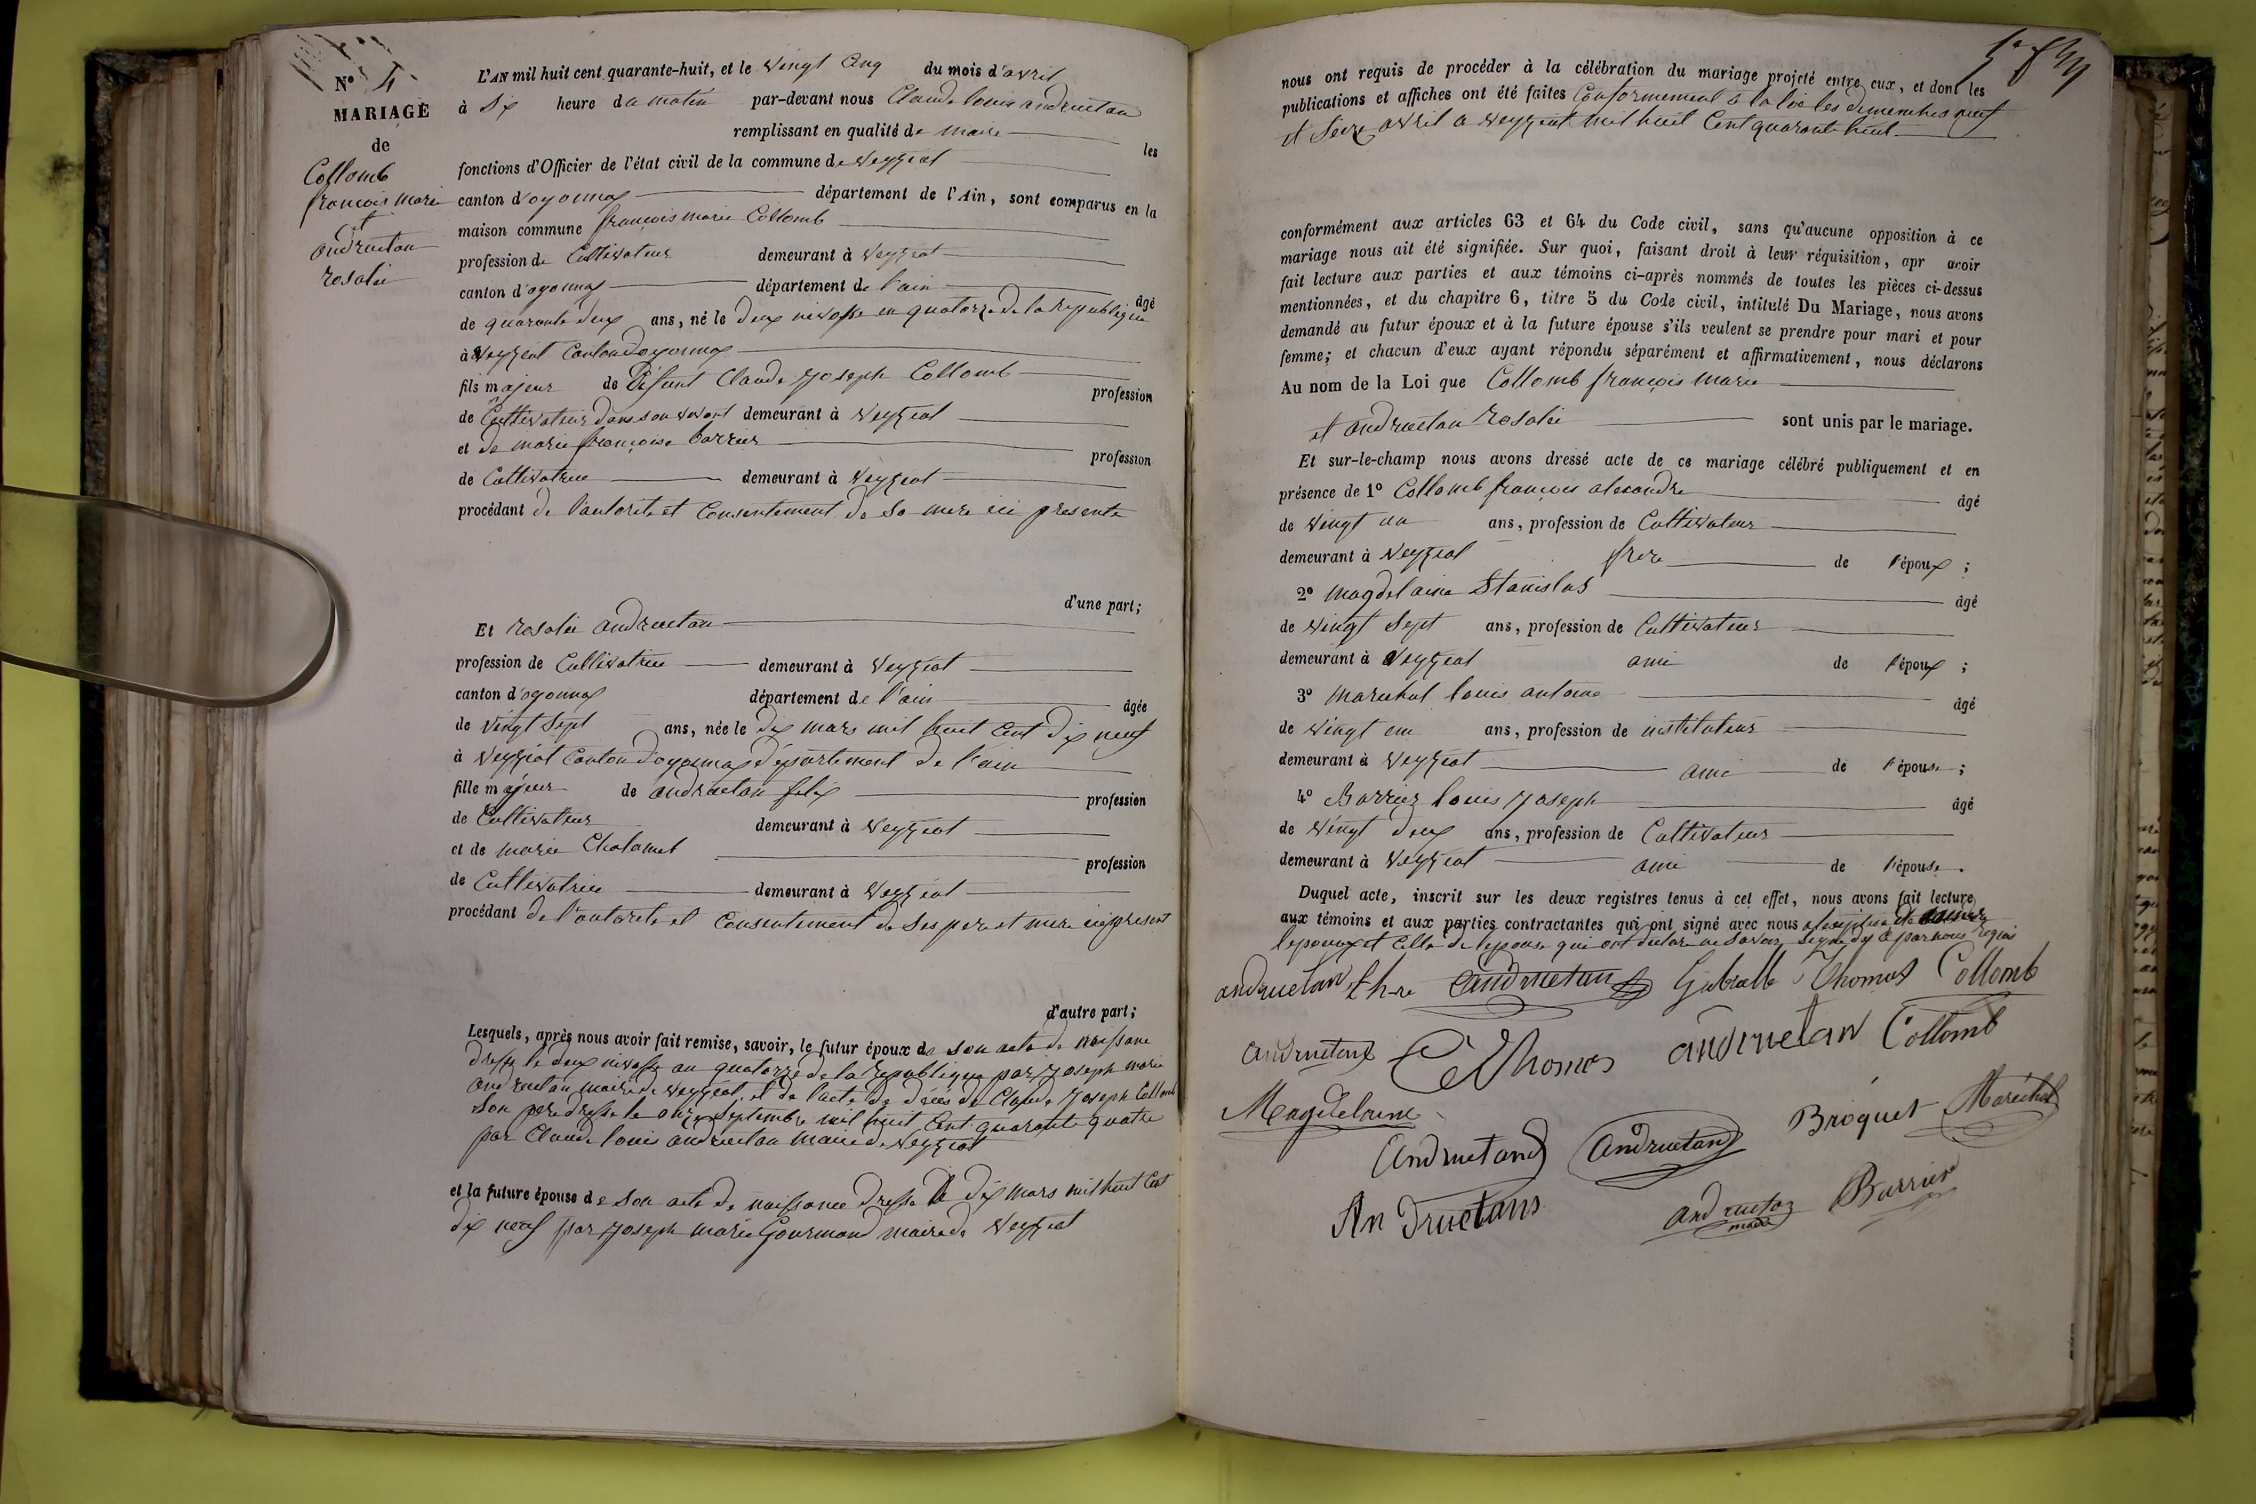 N° 4
MARIAGE
de
Collomb
françois marie
et
andruetan
rosalie
L'AN mil huit cent quarante-huit, et le vingt cinq du mois d'avril
à six heure du matin par-devant nous Claude louis andruetan
remplissant en qualité de maire les
fonctions d'Officier de l'état civil de la commune de veyziat
canton d'oyonnax département de l'Ain, sont comparus en la
maison commune françois marie Collomb
profession de Cultivateur demeurant à veyziat
canton d'oyonnax département de l'ain âgé
de quarante deux ans, né le deux nivosse en quatorze de la republique
à veyziat Canton doyonnax
fils majeur de défunt Claude joseph Collomb profession
de Cultivateur dans son vivant demeurant à veyziat
et de marie françoise barrier profession
de Cultivatrice demeurant à veyziat
procédant de l'autorite et Consentement de sa mere ici presente
d'une part;
Et rosalie andruetan
profession de Cultivatrice demeurant à veyziat
canton d'oyonnax département de l'ain âgée
de vingt sept ans, née le dix mars mil huit Cent dix neuf
à veyziat Canton doyonnax département de l'ain
fille majeur de andruetan felix profession
de Cultivateur demeurant à veyziat
et de marie Chalamet profession
de Cultivatrice demeurant à veyziat
procédant de l'autorite et Consentement de ses pere et mere ici present
d'autre part;
Lesquels, après nous avoir fait remise, savoir, le futur époux de son acte de naissance
dresse le deux nivosse an quatorze de la republique par joseph marie
andruetan maire de veyziat, et de l'acte de décés de Claude joseph Collomb
son pere dresse le onze septembre mil huit Cent quarante quatre
par Claude louis andruetan maire de veyziat
et la future épouse de son acte de naissance dresse le dix mars mil huit Cent
dix neuf par joseph marie Gourmand maire de veyziat
nous ont requis de procéder à la célébration du mariage projeté entre eux, et dont les
publications et affiches ont été faites Conformement a la loi les dimenches neuf
et seize avril a veyziat mil huit Cent quarante huit
conformément aux articles 63 et 64 du Code civil, sans qu'aucune opposition à ce
mariage nous ait été signifiée. Sur quoi, faisant droit à leur réquisition, apr avoir
fait lecture aux parties et aux témoins ci-après nommés de toutes les pièces ci-dessus
mentionnées, et du chapitre 6, titre 5 du Code civil, intitulé Du Mariage, nous avons
demandé au futur époux et à la future épouse s'ils veulent se prendre pour mari et pour
femme; et chacun d'eux ayant répondu séparément et affirmativement, nous déclarons
Au nom de la Loi que Collomb françois marie
et andruetan rosalie sont unis par le mariage.
Et sur-le-champ nous avons dressé acte de ce mariage célébré publiquement et en
présence de 1° Collomb françois alexandre âgé
de vingt un ans, profession de Cultivateur
demeurant à veyziat frere de l'époux;
2° magdelaine Stanislas âgé
de vingt sept ans, profession de Cultivateur
demeurant à veyziat ami de l'époux;
3° marechal louis antoine âgé
de vingt un ans, profession de instituteur
demeurant à veyziat ami de l'épouse;
4° Barrier louis joseph âgé
de vingt deux ans, profession de Cultivateur
demeurant à veyziat ami de l'épouse.
Duquel acte, inscrit sur les deux registres tenus à cet effet, nous avons fait lecture
aux témoins et aux parties contractantes qui ont signé avec nous a lexception de la mere
lepoux et Celle de lepouse qui ont declare ne savoir signe de ce par nous requis
andruetan andruetan Thomas Collomb
andruetan Thomas andruetan Collomb
Magdelaine Bróquet Maréchal
andruetand andruetand
An druetans andruetan maire Barrier